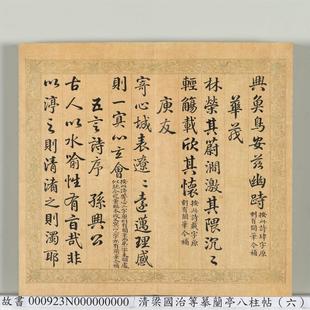 興魚鳥安茲幽跱
華茂
林榮其蔚澗激其隈汎〻
輕觴載欣其懷
刻有闕筆今補
庾友
寄心域表遼〻遠邁理感
則一冥以玄會
五言詩序 孫興公
古人以水喻性有旨哉非
以渟之則清淆之則濁耶
故書 000923N000000000 清梁國治等摹蘭亭八柱帖(六)